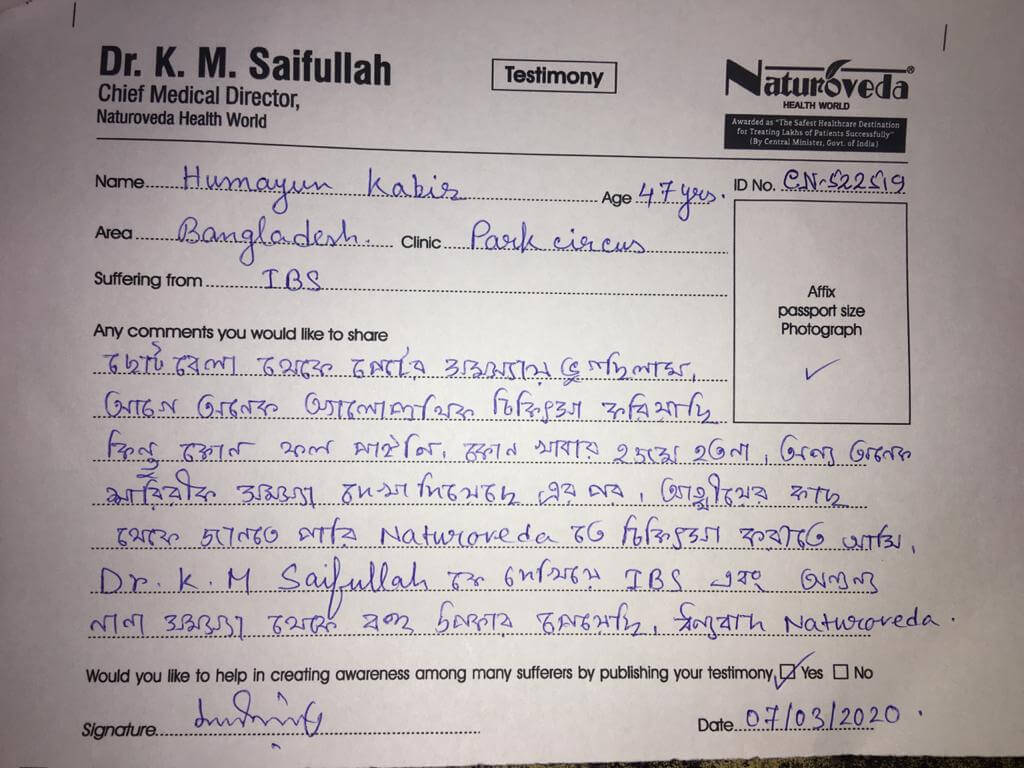 Dr. K. M. Saifullah
Chief Medical Director,
Naturoveda Health World
Testimony
Naturoveda®
HEALTH WORLD
Awarded as "The Safest Healthcare Destination
for Treating Lakhs of Patients Successfully"
(By Central Minister, Govt. of India)
Name Humayun Kabir Age 47 yrs. ID No. CN-522519
Area Bangladesh. Clinic Park circus
Suffering from IBS
Affix
passport size
Photograph
Any comments you would like to share
ছোট বেলা থেকে পেটের সমস্যায় ভুগছিলাম,
আগে অনেক অ্যালোপাথিক চিকিৎসা করিয়াছি
কিন্তু কোন ফল পাইনি, কোন খাবার হজম হতনা, অন্য অনেক
শারিরীক সমস্যা দেখা দিয়েছে এর পর, আত্মীয়ের কাছ
থেকে জানতে পারি Naturoveda তে চিকিৎসা করাতে আসি,
Dr. K. M Saifullah কে দেখিয়ে IBS এবং অন্যন্য
নানা সমস্যা থেকে বহু উপকার পেয়েছি, ধন্যবাদ Naturoveda.
Would you like to help in creating awareness among many sufferers by publishing your testimony, Yes No
Signature Date 07/03/2020.